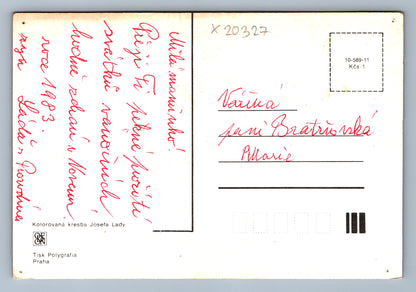 X 20327
10-589-11
Kčs 1
Milá maminko!
Přeji Ti pěkné prožití
svátků vánočních
hodně zdraví v Novém
roce 1983.
Láďa
Vážená
paní Bratřovská
Marie
Kolorovaná kresba Josefa Lady
Tisk Polygrafia
Praha